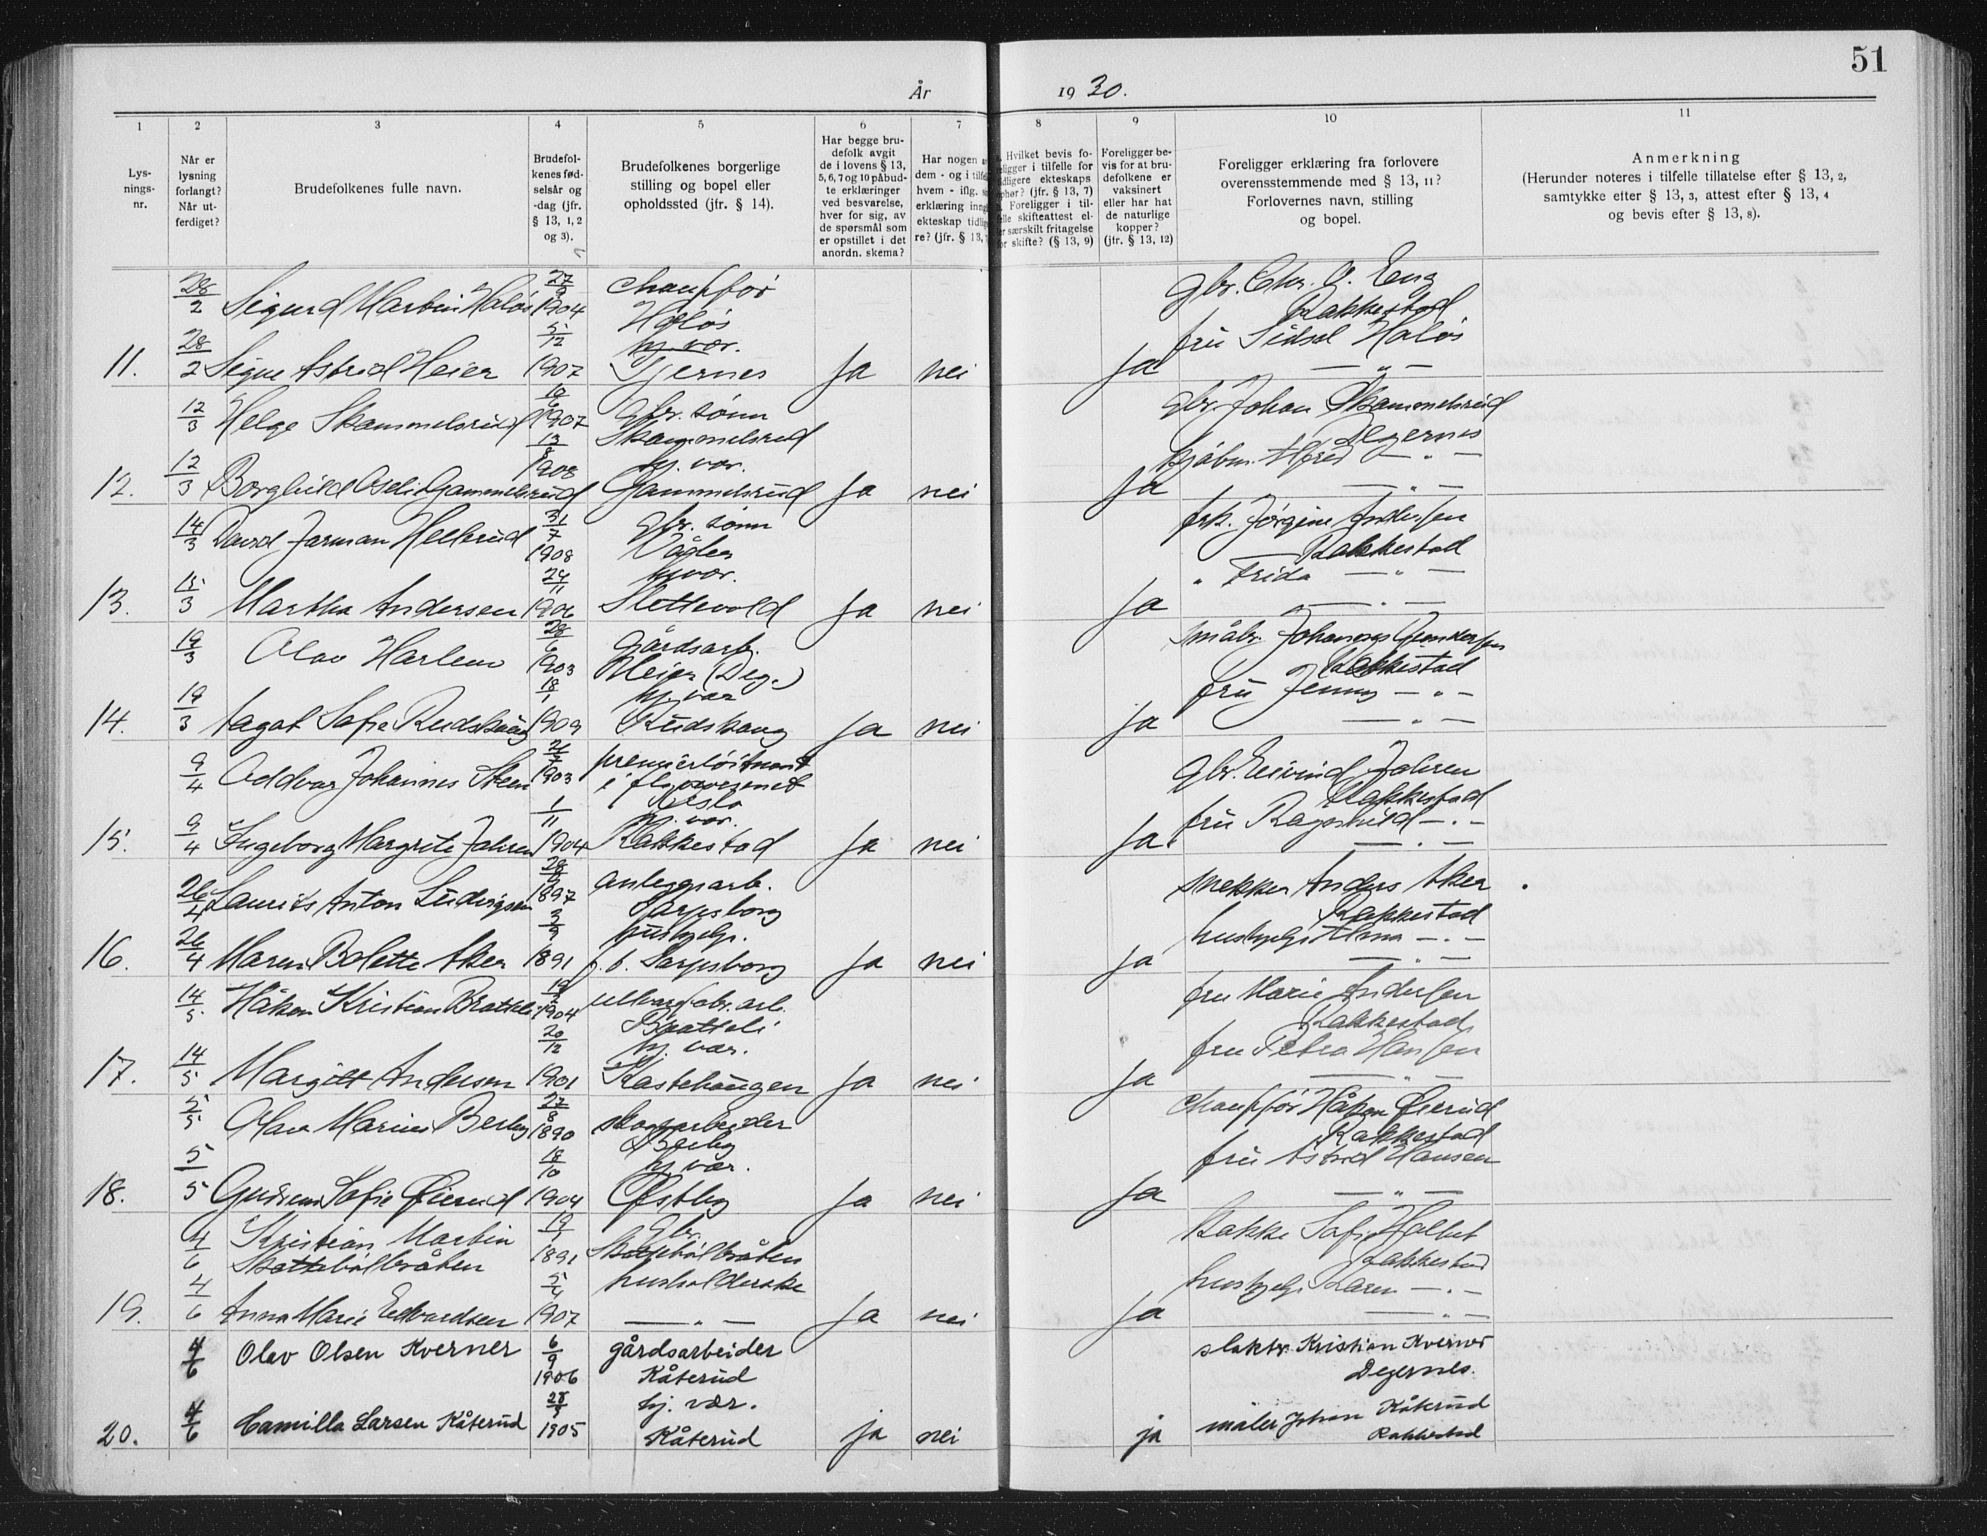 51
År 1930.
1 2 3 4 5 6 7 8 9 10 11
Lysningsnr.
Når er lysning forlangt? Når utferdiget?
Brudefolkenes fulle navn.
Brudefolkenes fødselsår og -dag (jfr. § 13, 1, 2 og 3).
Brudefolkenes borgerlige stilling og bopel eller opholdssted (jfr. § 14).
Har begge brudefolk avgit de i lovens § 13, 5, 6, 7 og 10 påbudte erklæringer ved besvarelse, hver for sig, av de spørsmål som er opstillet i det anordn. skema?
Har nogen dem - og i tilfe hvem - iflg. erklæring inng ekteskap tidlig re? (jfr. § 13,
Hvilket bevis foreligger i tilfelle for tidligere ekteskaps ophør? (jfr. § 13, 7) Foreligger i tilfelle skifteattest eller særskilt fritagelse for skifte? (§ 13, 9)
Foreligger bevis for at brudefolkene er vaksinert eller har hat de naturlige kopper? (jfr. § 13, 12)
Foreligger erklæring fra forlovere overensstemmende med § 13, 11? Forlovernes navn, stilling og bopel.
Anmerkning (Herunder noteres i tilfelle tillatelse efter § 13, 2, samtykke efter § 13, 3, attest efter § 13, 4 og bevis efter § 13, 8).
28/2 Sigurd Martin Haløs 27/9 1904 chauffør Haløs gbr. Chr. A. Eng Rakkestad
fru Sidsel Haløs
11. 28/2 Signe Astrid Heier 5/12 1907 hj. vær. Tjernes Ja nei Ja — " —
12/3 Helge Skammelsrud 1907 gbr. sønn Skammelsrud gbr. Johan Skammelsrud Degernes
Alfred — " —
12. 12/3 Borghild Oseli Gammelsrud 13/8 1908 hj. vær. Gammelsrud Ja nei Ja — " —
14/3 David Jarman Hellerud 31/7 1908 gbr. sønn frk. Jørgine Andersen Rakkestad
" Frida — " —
13. 15/3 Martha Andersen 24/11 1906 hj. vær. Slettevold Ja nei Ja — " —
19/3 Olav Harlem 28/6 1903 gårdsarb. Heier (Deg.) småbr. Johannes Gundersen Rakkestad
fru Jenny — " —
14. 19/3 Aagot Sofie Rudshaug 18/1 1909 hj. vær Rudshaug Ja nei Ja — " —
9/4 Oddvar Johannes Steen 1903 premierløitnant i flyvevesenet Oslo gbr. Eivind Jahren Rakkestad
fru Ragnhild — " —
15. 9/4 Ingeborg Margrete Jahren 1/11 1904 hj. vær. Rakkestad Ja nei Ja — " —
26/4 Laurits Anton Ludvigsen 1897 anleggsarb. Sarpsborg snekker Anders Aker Rakkestad
hushjelp Alma — " —
16. 26/4 Maren Bolette Aker 3/9 1891 hushjelp. f. t. Sarpsborg Ja nei Ja — " —
14/5 Håkon Kristian Bratteli 1904 ullvarefabr. arb. Bratteli fru Marie Andersen Rakkestad
fru Petra Hansen
17. 14/5 Margitt Andersen 20/12 1901 hj. vær. Kastehaugen Ja nei Ja — " —
5/5 Olav Marius Berby 27/8 1890 skogsarbeider Berby chauffør Håkon Øierud Rakkestad
fru Astrid Hansen
18. 5/5 Gudrun Sofie Øierud 18/10 1904 hj. vær. Østby Ja nei Ja — " —
4/6 Kristian Martin Skattebølbråten 1891 Gbr. Skattebølbråten kokke Sofie Hollet Rakkestad
hushjelp Karen — " —
19. 4/6 Anna Marie Edvardsen 1907 husholderske — " — Ja nei Ja — " —
4/6 Olav Olsen Kverner 6/9 1906 gårdsarbeider Kåterud slaktr. Kristian Kverner Degernes.
20. 4/6 Camilla Larsen Kåterud 1905 hj. vær. Kåterud ja nei ja maler Johan Kåterud Rakkestad